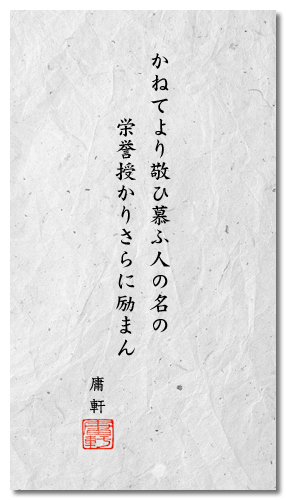 かねてより敬ひ慕ふ人の名の
栄誉授かりさらに励まん
庸軒
庸軒